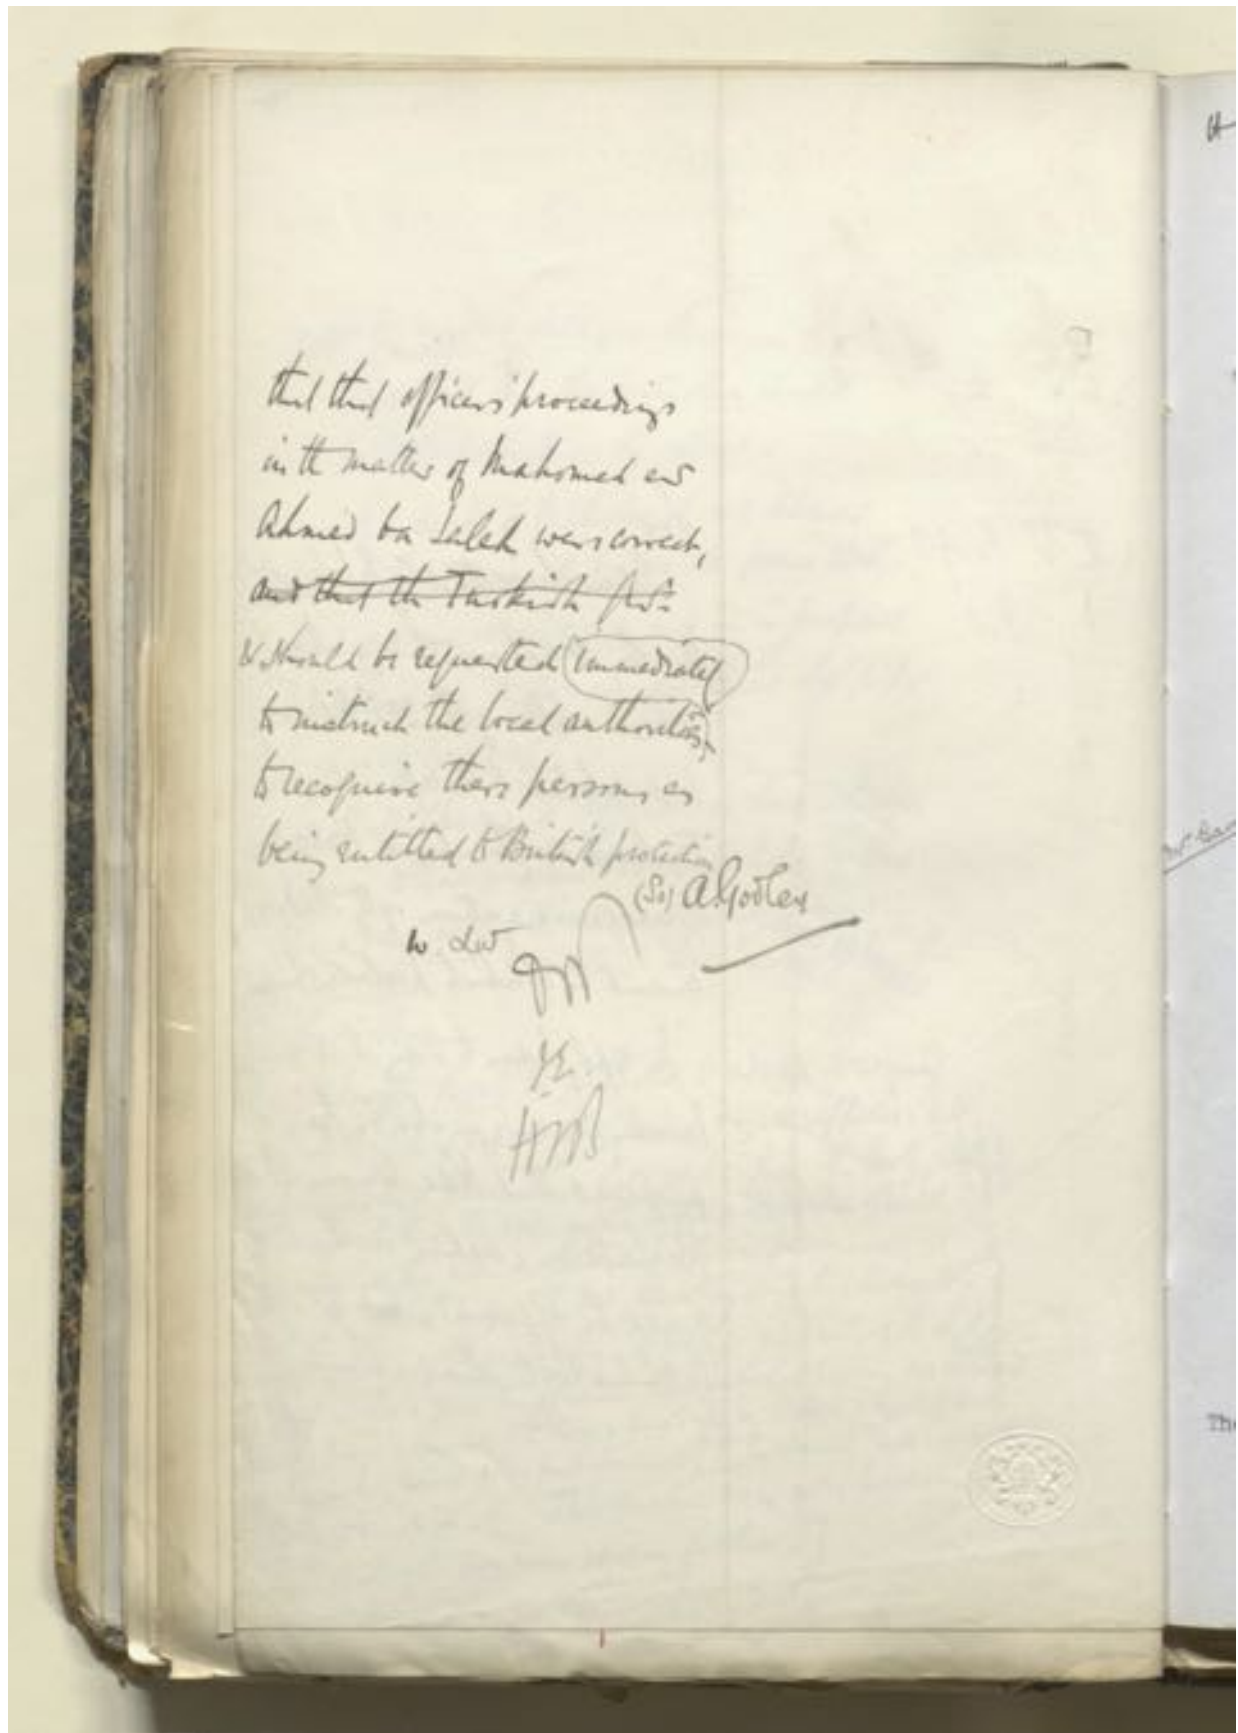 that that officer's proceedings
in the matter of Mahomed and
Ahmed ba Saleh were correct,
and that the Turkish Govt
& should be requested immediately
to instruct the local authorities
to recognise these persons as
being entitled to British protection
(Sd) A. Godley
HMB
The